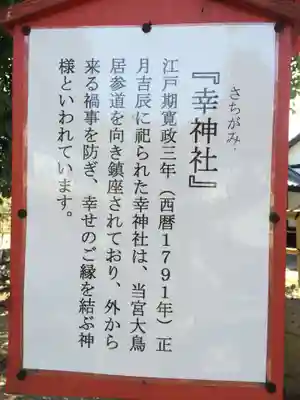 さちがみ
『幸神社』
江戸期寛政三年（西暦１７９１年）正
月吉辰に祀られた幸神社は、当宮大鳥
居参道を向き鎮座されており、外から
来る禍事を防ぎ、幸せのご縁を結ぶ神
様といわれています。